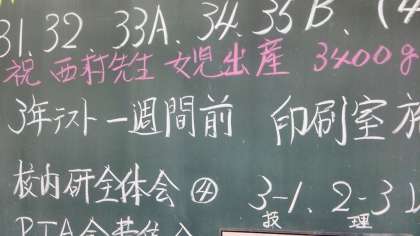 31. 32 33A、34、35B、(4
祝 西村先生 女児出産 3400g
3年テスト一週間前 印刷室
校内研全体会 ④ 3-1、2-3
技 理
PTA会費